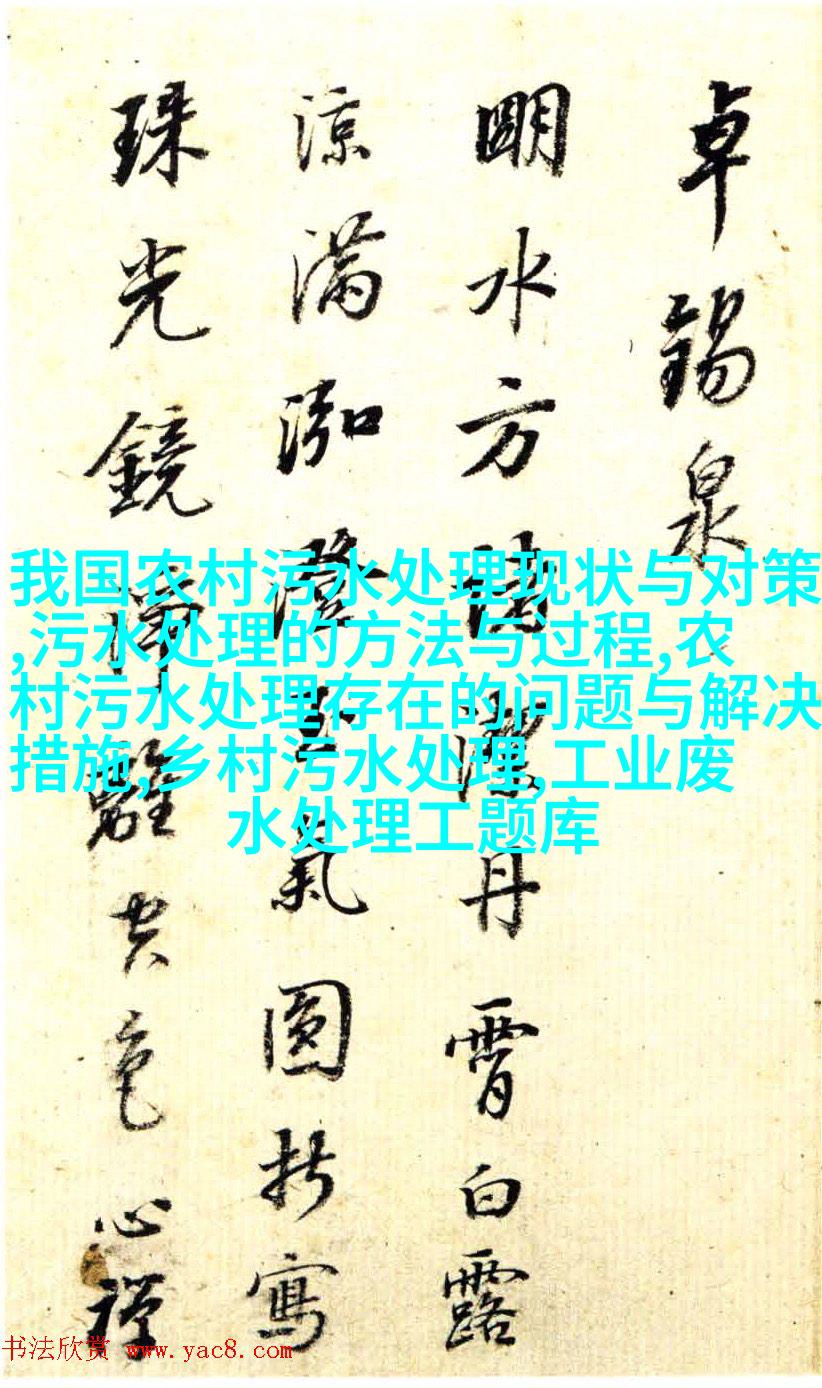 卓錫泉
明水方諸潔丹霄白露
涼滿泓澄一氣圓折寫
珠光鏡淨離空色心禪
我国农村污水处理现状与对策
,污水处理的方法与过程,农
村污水处理存在的问题与解决
措施,乡村污水处理,工业废
水处理工题库
书法欣赏 www.yac8.com